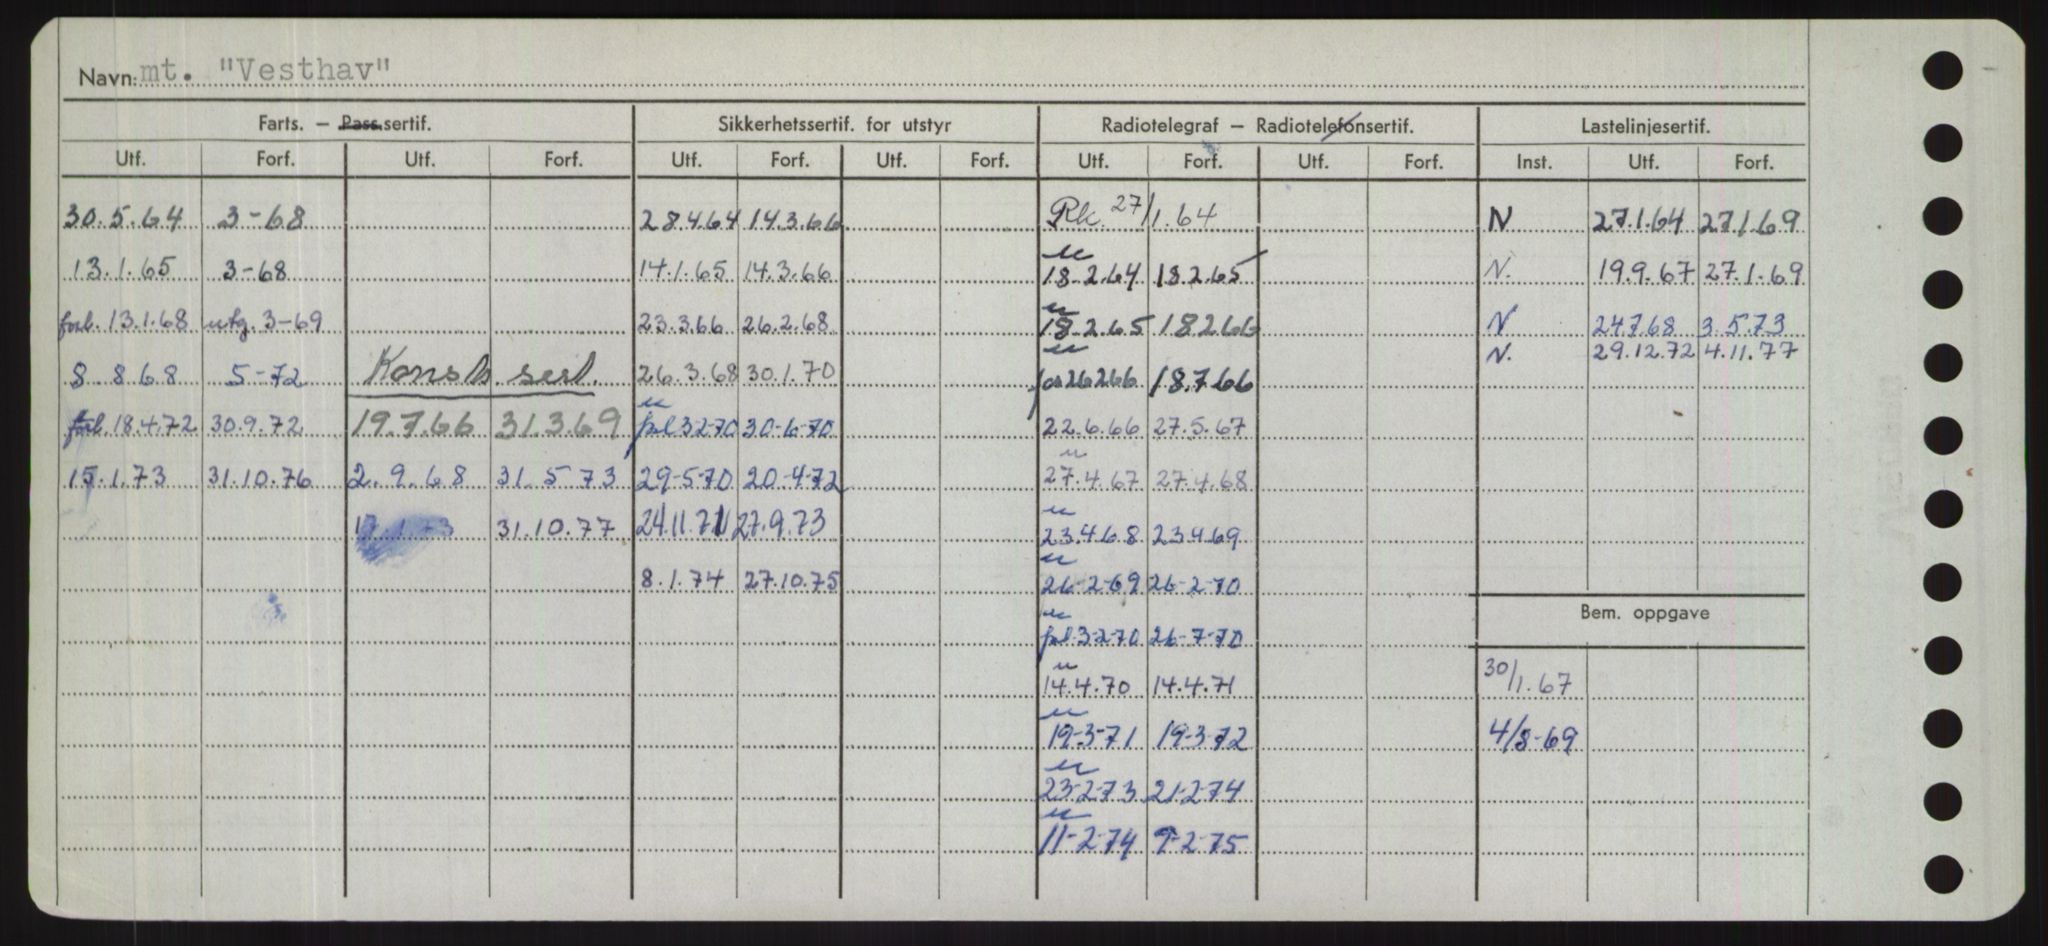 Navn: mt. "Vesthav"
Farts. — Pass.sertif. Sikkerhetssertif. for utstyr Radiotelegraf — Radiotelefonsertif. Lastelinjesertif.
Utf. Forf. Utf. Forf. Utf. Forf. Utf. Forf. Utf. Forf. Utf. Forf. Inst. Utf. Forf.
30.5.64 3-68 28.4.64 14.3.66 Rk. 27/1.64 N 27.1.64 27.1.69
13.1.65 3-68 14.1.65 14.3.66 18.2.64 18.2.65 N. 19.9.67 27.1.69
forl. 13.1.68 utg. 3-69 23.3.66 26.2.68 18.2.65 18266 N 24768 3.5.73
N. 29.12.72 4.11.77
8 8 68 5-72 Konstr. sert. 26.3.68 30.1.70 26266 18.7.66
forl. 18.4.72 30.9.72 19.7.66 31.3.69 forl 3-2-70 30-6-70 22.6.66 27.5.67
15.1.73 31.10.76 2.9.68 31.5 73 29-5-70 20-4-72 27.4.67 27.4.68
1.73 31.10.77 24.11.71 27.9.73 23.4.68 23469
8.1.74 27.10.75 26-2-69 26-2-70
Bem. oppgave
forl 3-2-70 26-7-70
14.4.70 14.4.71 30/1.67
19-3-71 19-3-72 4/8-69
23-2-73 21-2-74
11-2-74 9-2-75